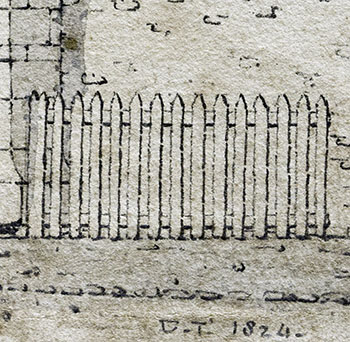 D.T 1824.